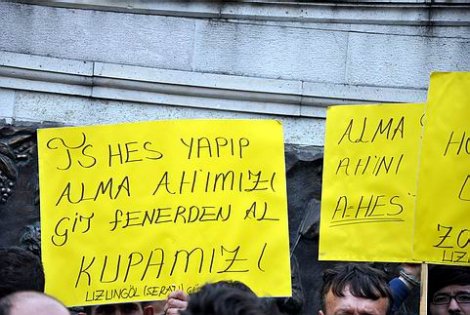 TS HES YAPIP
ALMA AHİMIZI
GİT FENERDEN AL
KUPAMIZI
UZUNGÖL
ALMA
AHİNİ
A-HES
HO
ZO